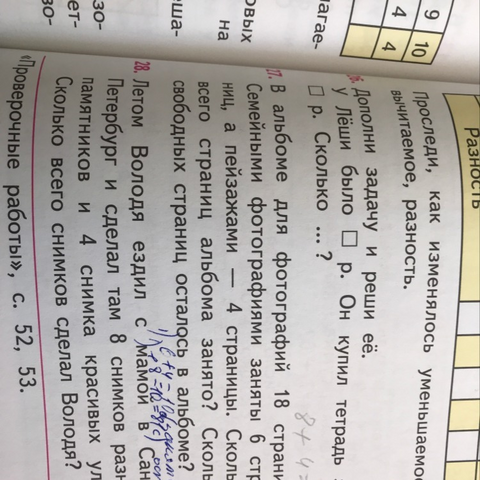 9
10
4
4
Разность
Проследи, как изменялось уменьшаемое
вычитаемое, разность.
Дополни задачу и реши её.
У Лёши было □ р. Он купил тетрадь
□ р. Сколько ... ?
В альбоме для фотографий 18 страни
Семейными фотографиями заняты 6 стр
ниц, а пейзажами — 4 страницы. Сколь
всего страниц альбома занято? Скол
свободных страниц осталось в альбоме?
28. Летом Володя ездил с мамой в Сан
Петербург и сделал там 8 снимков разн
памятников и 4 снимка красивых ул
Сколько всего снимков сделал Володя?
«Проверочные работы», с. 52, 53.
8 + 4 =
лагае-
овых
на
еша-
зо-
ет-
зо-